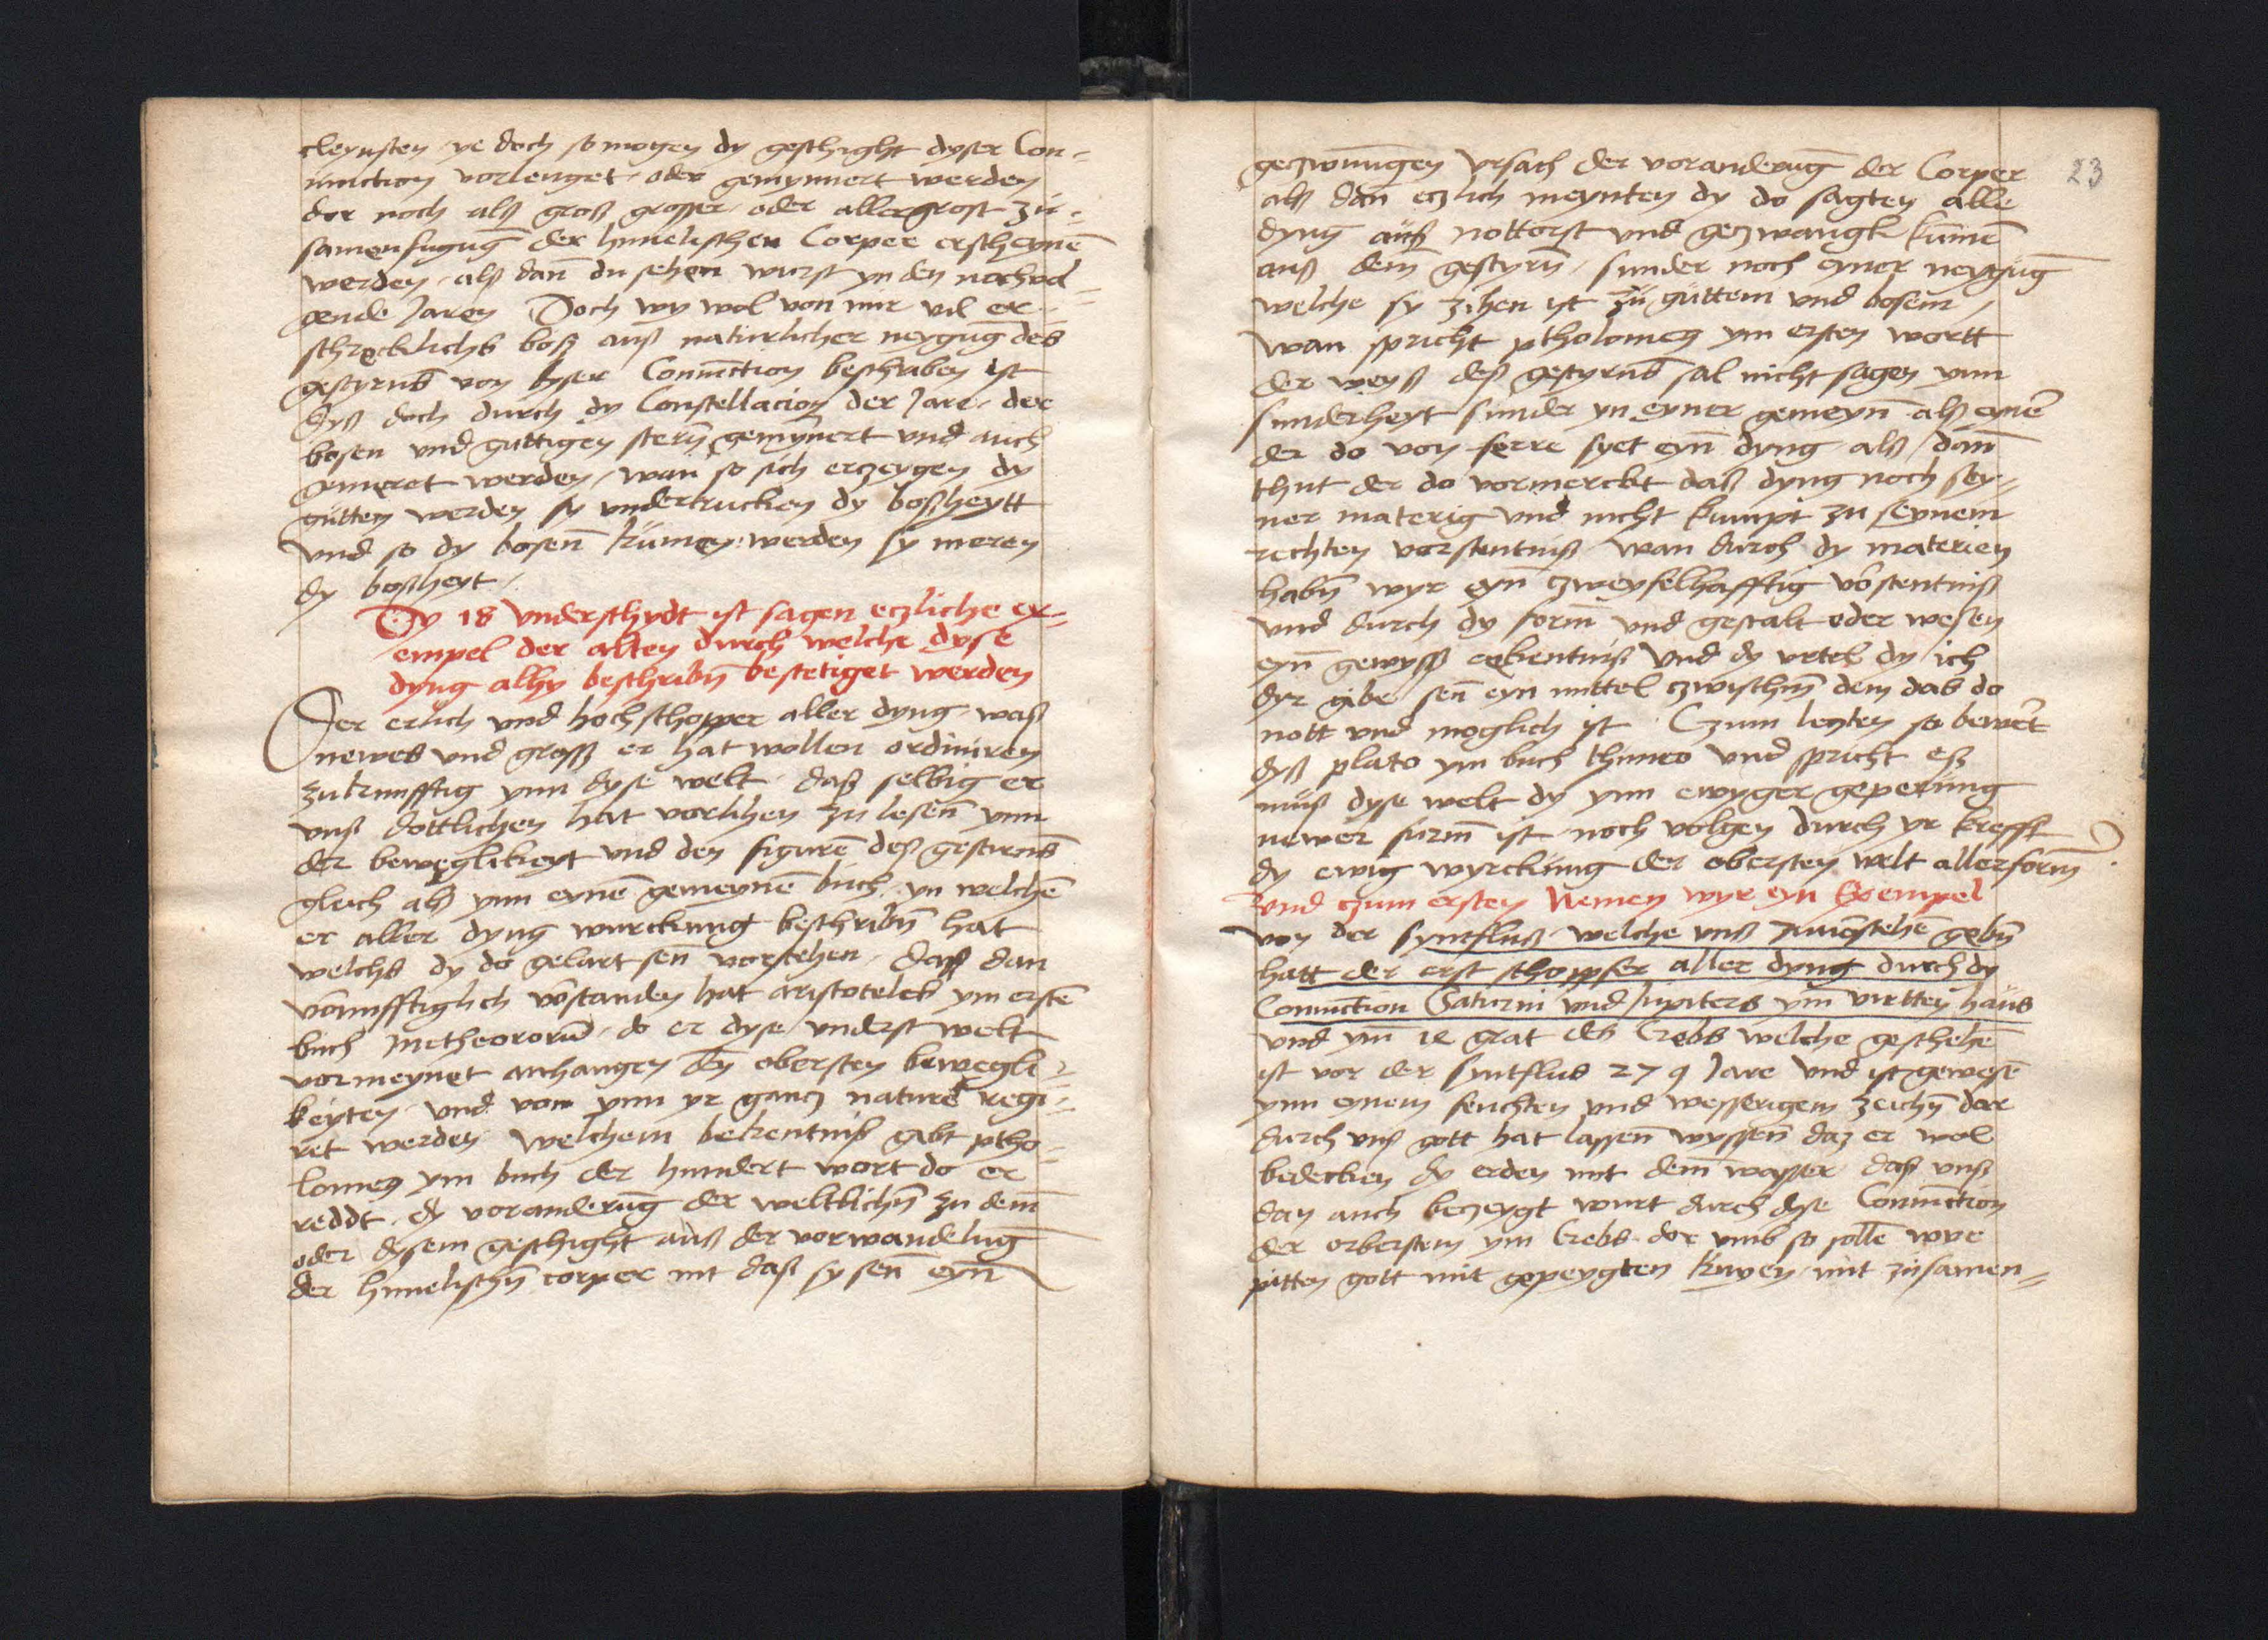 cleynsten ye doch so mogen dy geschight dyser Con-
iunction vorlenget oder gemynnert werden
dor noch alß groß grosser oder allergrost zu-
samenfuguḡ der himelischen Corper erscheynē
werden alß dan̄ du sehen wirst yn den nochvol-
gende Jaren Doch wy wol von mir vil er-
schrecklichs boß auß naturlicher neyguḡ des
gestyrns von dyser Coniūction beschriben ist
dyß doch durch dy Constellacion der Jare der
bosen und guttigen stern̄ gemynert und auch
gemeret werden / wan so sich erczeygen dy
gutten werden sy undertrucken dy boßheytt
Und so dy bosen̄ kumen werden sy meren
dy boßheyt /
Dy 18 Underschydt ist sagen eczliche ex-
empel der alten durch welche dyse
dyng alhy beschribn̄ bestetiget werden
Der erlich und hoch schopper aller dyng waß
newes und groß er hat wollen ordiniren
zukunfftig ynn dyse welt daß selbig er
unß dottlichen hat vorlihen zu lesen̄ ynn
der beweglikeyt und den figurē deß gestirns
gleich alß ynn eynē gemeynē buch yn welchē
er aller dyng wurckung beschribn̄ hat
welchs dy do gelart sen̄ vorstehen Daß dan
vornufftiglich vōstanden hat aristoteles ym erstē
buch Metheororū do er dyse underst welt
vormeynet anhangen den obersten bewegli-
keyten und von ynn yr gancz nature regi-
ret werden Welchem bekentniß gebt ptho-
lomeus ym buch der hundert wort do er
reddt dy voranderūg der weltlichn̄ zu dem
oder dysem geschight auß der vorwandelūg
der himelischn̄ corper nit daß sy sen̄ eyn̄
23
geczwungen Ursach der voranderūg der Corper
alß dan̄ eczlich meynten dy do sagten alle
dyng auß nottorft und geczwangk kumē
auß dem̄ gestyrn̄ / sunder noch eyner neygūg
welche sy zihen ist zu guttem und bosem /
Wan spricht ptholomeus ym ersten wortt
der weyß deß gestyrns sal nicht sagen ynn
sunderheyt sunder yn eyner gemeyn̄ alß eynē
der do von ferre syet eyn̄ dyng alß / dan̄
thut der do vormerckt daß dyng noch sey-
ner materig und nicht kumpt zu seynem
rechten vorstentniß Wan durch dy materien
habn̄ wyr eyn̄ czweyfelhafftig vōstentniß
und durch dy form̄ und gestalt oder wesen
eyn̄ gewyß erkentniß Und dy urtel dy ich
dyr gibe sen̄ eyn mittel czwischn̄ dem das do
nott und moglich ist Czum leczten so bewert
dyß plato ym buch thimeo und spricht eß
muß dyse welt dy ynn ewyger geperung
newer furm̄ ist noch volgen durch yr krefft
dy ewig wyrckung der obersten welt allerform̄
Und czum ersten Nemen wyr eyn Exempel
von der syntfluß welche unß zuvōstehē gebn̄
hatt der erst schoppfer aller dyng durch dy
Coniūction Saturni und Jupiters ym virtten hauß
und ym̄ 12 grat des Crebs welche geschehē
ist vor der syntflus 279 Jare und ist gewesē
ynn eynem feuchten und wesserigem zeichn̄ dor
durch unß gott hat lassen̄ wyssen̄ daz er wol
bedecken dy erden mit dem̄ wasser daß unß
dan auch beczeygt wurt durch dyse Coniūction
der obersten ym Crebs dor umb so solle wyr
pitten gott mit gepeygten knyen mit zusamen-